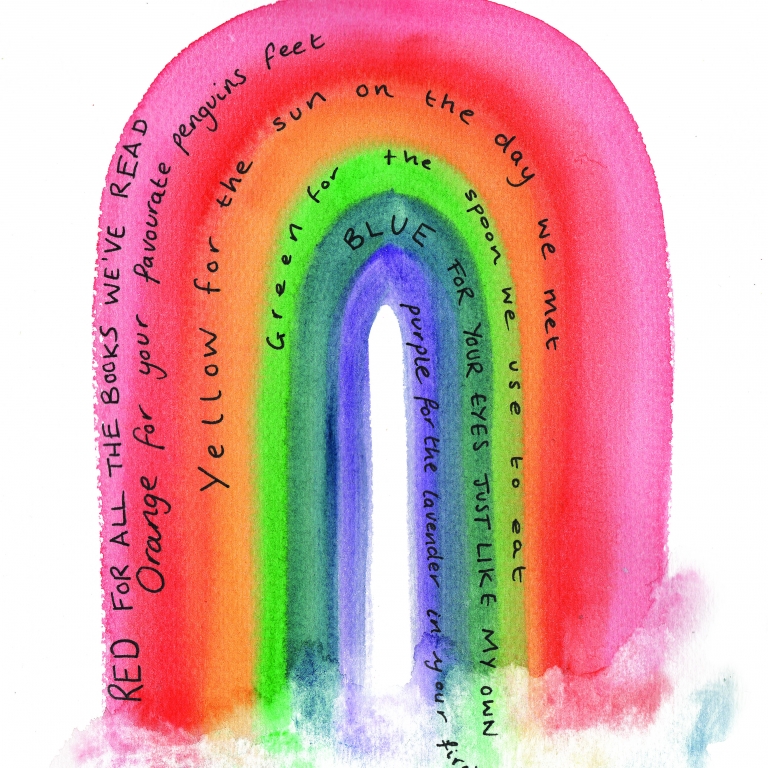 RED FOR ALL THE BOOKS WE'VE READ
Orange for your favourate penguins feet
Yellow for the sun on the day we met
Green for the spoon we use to eat
BLUE FOR YOUR EYES JUST LIKE MY OWN
purple for the lavender in your